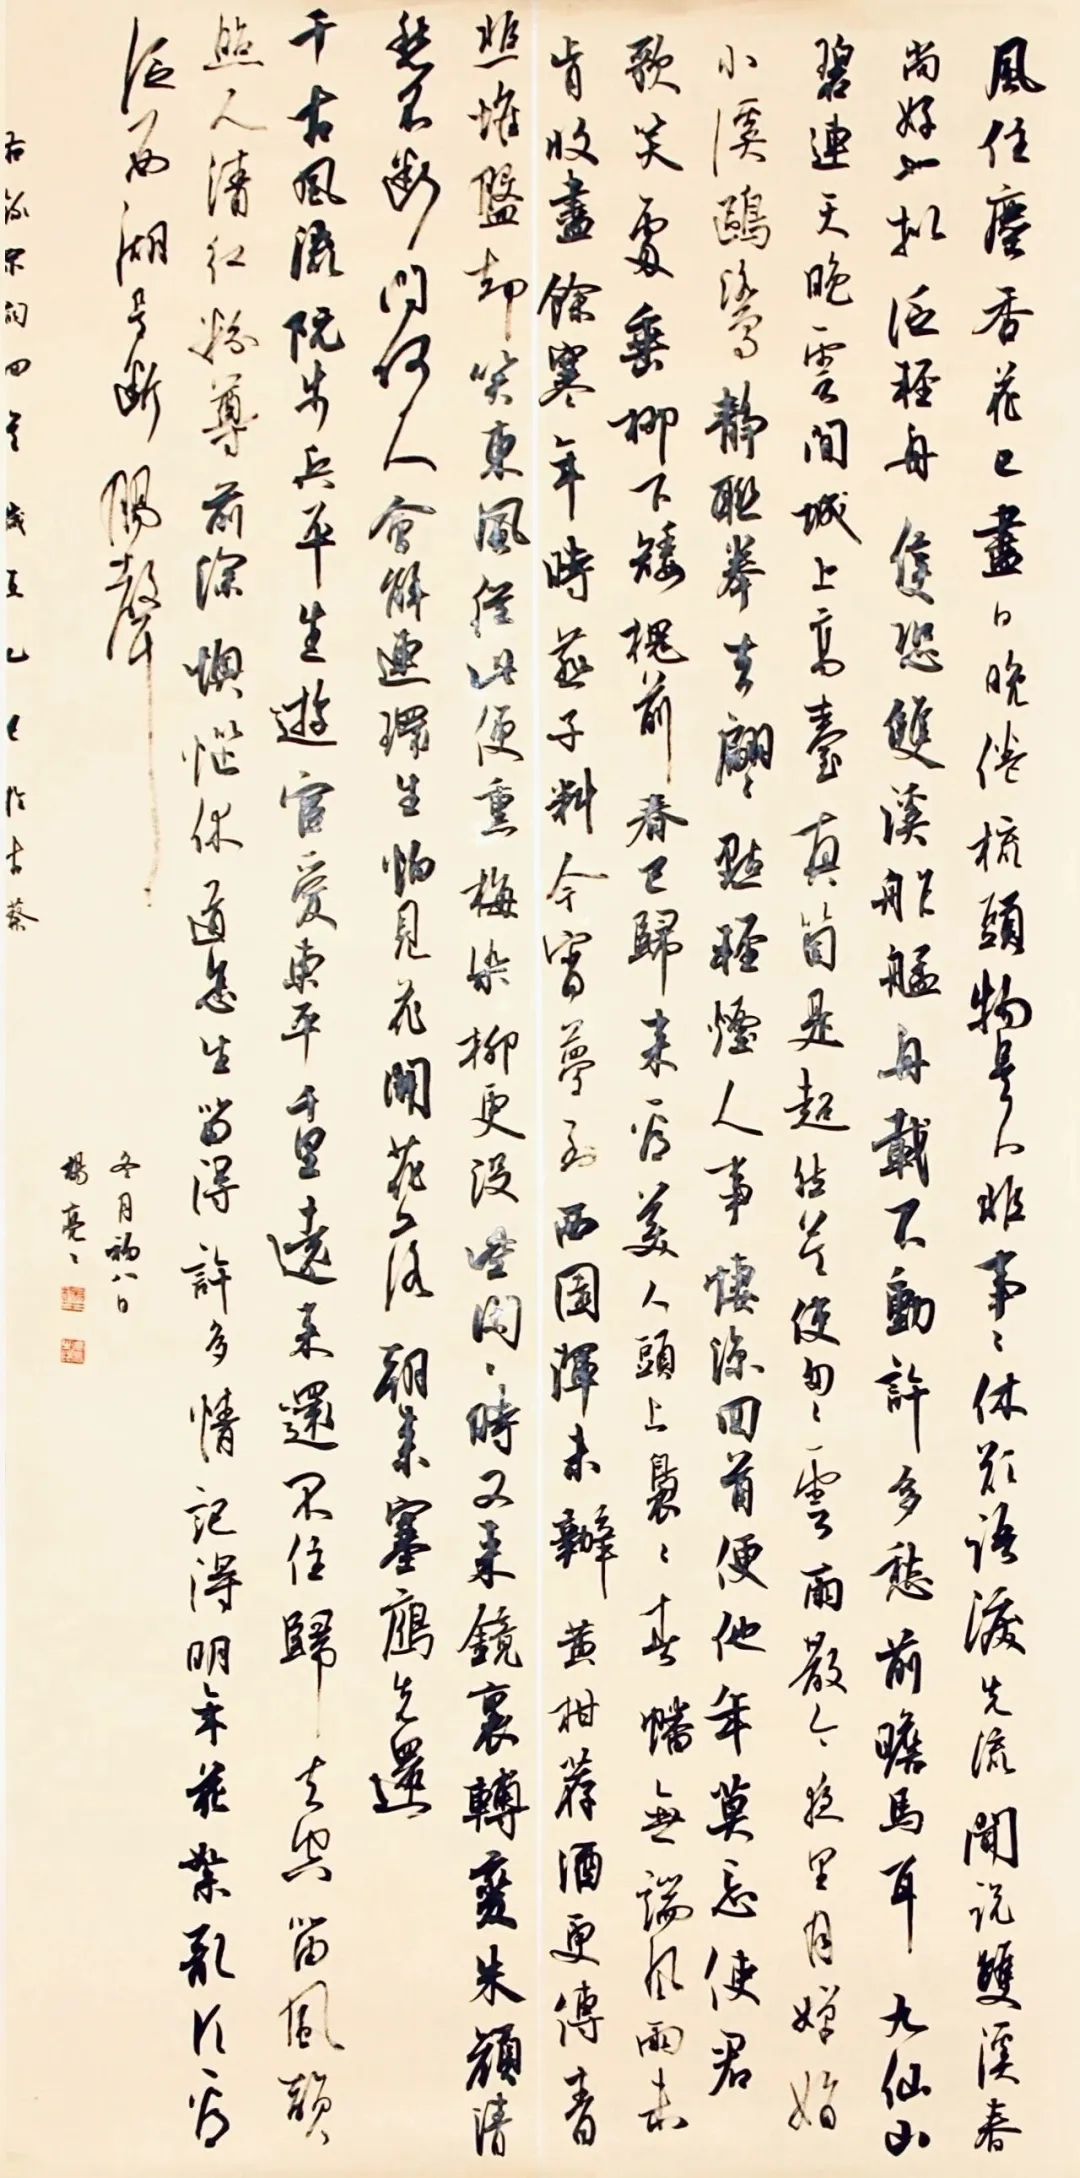 風住塵香花已盡日晚倦梳頭物是人非事〻休欲語淚先流聞説雙溪春
尚好也擬泛輕舟隻恐雙溪舴艋舟載不動許多愁前瞻馬耳九仙山
碧連天晚雲間城上高臺真箇是超然莫使匆〻雲雨散今夜里月嬋娟
小溪鷗鷺靜聯拳去翩〻點輕煙人事悽涼回首便他年莫忘使君
歌笑處垂柳下矮槐前春已歸來看美人頭上裊〻春幡無端風雨未
肯收盡餘寒年時燕子料今宵夢到西園渾未辦黄柑荐酒更傳青
韭堆盤却笑東風從此便熏梅染柳更没些閑〻時又來鏡裏轉變朱顔清
愁不斷問何人會解連環生怕見花開花落朝來塞雁先還
千古風流阮步兵平生遊宦愛東平千里遠來還不住歸去空留風韻
照人清紅粉尊前深懊惱休道怎生留得許多情記得明年花絮亂須看
泛西湖是斷腸聲
右錄宋詞四首歲在乙巳於古蔡
冬月初八日
楊亮〻